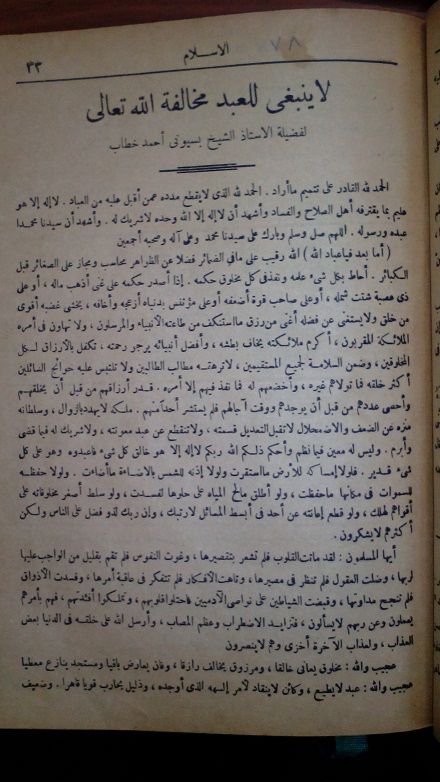 ٧٨
الاسلام
٣٣
لا ينبغى للعبد مخالفة الله تعالى
لفضيلة الاستاذ الشيخ بسيونى أحمد خطاب
الحمد لله القادر على تتميم ماأراد . الحمد لله الذى لايقطع مدده عمن أقبل عليه من العباد . لاإله إلا هو
عليم بما يقترفه أهل الصلاح والفساد وأشهد أن لاإله إلا الله وحده لاشريك له . وأشهد أن سيدنا محمدا
عبده ورسوله . اللهم صل وسلم وبارك على سيدنا محمد وعلى آله وصحبه أجمعين
( أما بعد فياعباد الله ) الله رقيب على مافى الضمائر فضلا عن الظواهر محاسب ومجاز على الصغائر قبل
الكبائر . أحاط بكل شىء علمه ونفذ فى كل مخلوق حكمه . إذا أصدر حكمه على غنى أذهب ماله ، أو على
ذى عصبة شتت شمله ، أو على صاحب قوة أضعفه أو على مؤتنس بدنياه أزعجه وأخافه ، يخشى غضبه أقوى
من خلق ولايستغنى عن فضله أغنى من رزق مااستنكف من طاعته الأنبياء والمرسلون ، ولا تهاون فى أمره
الملائكة المقربون ، أكرم ملائكته يخاف بطشه ، وأفضل أنبيائه يرجو رحمته ، تكفل بالأرزاق لكل
المخلوقين ، وضمن السلامة لجميع المستقيمين ، لاترهقه مطالب الطالبين ولا تلتبس عليه حوائج السائلين
أكثر خلقه فما تولاهم غيره ، وأخضعهم له فما نفذ فيهم إلا أمره . قدر أرزاقهم من قبل أن يخلقهم
وأحصى عددهم من قبل أن يوجدهم ووقت آجالهم فلم يستشر أحدا منهم . ملكه لايهدد بالزوال ، وسلطانه
منزه عن الضعف والاضمحلال لاتقبل التعديل قسمته ، ولا تنقطع عن عبد معونته ، ولا شريك له فيما قضى
وأبرم . وليس له معين فيما نظم وأحكم ذلكم الله ربكم لاإله إلا هو خالق كل شىء فاعبدوه وهو على كل
شىء قدير . فلولا إمساكه للأرض مااستقرت ولولا إذنه للشمس بالاضاءة ماأضاءت . ولولا حفظه
للسموات فى مكانها ماحفظت ، ولو أطلق مالح المياه على حلوها لفسدت ، ولو سلط أصغر مخلوقاته على
أقواهم لهلك ، ولو قطع إعانته عن أحد فى أبسط المسائل لارتبك ، وإن ربك لذو فضل على الناس ولكن
أكثرهم لايشكرون .
أيها المسلمون : لقد ماتت القلوب فلم تشعر بتقصيرها ، وغوت النفوس فلم تقم بقليل من الواجب عليها
لربها ، وضلت العقول فلم تنظر فى مصيرها ، وتاهت الأفكار فلم تتفكر فى عاقبة أمرها ، وفسدت الأذواق
فلم تنجح مداوتها ، وقبضت الشياطين على نواصى الآدميين فاحتلوا قلوبهم ، وتملكوا أفئدتهم ، فهم بأمرهم
يعملون وعن ربهم لايسألون ، فتزايد الاضطراب وعظم المصاب ، وأرسل الله على خلقه فى الدنيا بعض
العذاب ، ولعذاب الآخرة أخزى وهم لاينصرون
عجيب والله : مخلوق يعاتى خالقا ، ومرزوق يخالف رازقا ، وفان يعارض باقيا ومستجد ينازع معطيا
عجيب والله : عبد لايطيع ، وكائن لاينقاد لأمر إلهه الذى أوجده ، وذليل يحارب قويا قاهرا . وضعيف